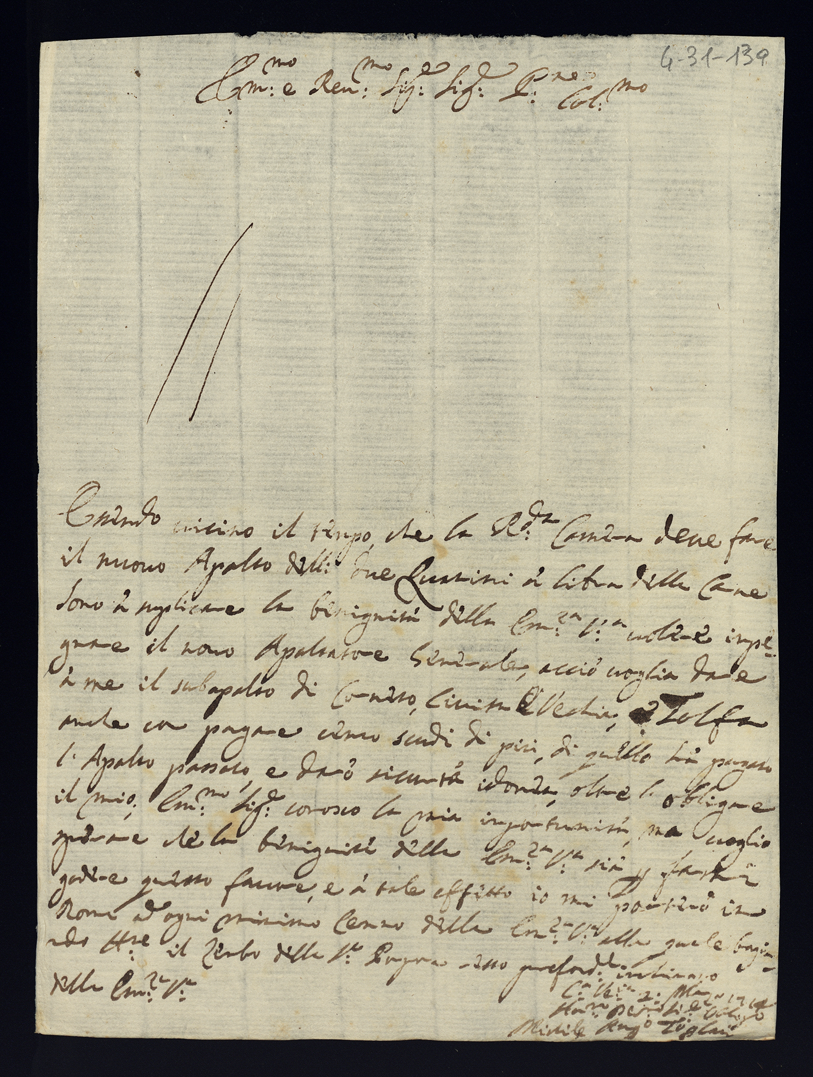 4-31-139
Em:mo e Reu:mo Sig:e Sig:e P:ne Col:mo
Essendo uicino il tempo che la R:da Camera deue fare
il nuouo Apalto delli due Quatrini à libra della Carne
sono à suplicare la benignità della Em:za V:a uolere impe-
gnare il nouo Apaltatore Generale, acciò uoglia dare
à me il subapalto di Corneto, Ciuita Vechia, e Tolfa
anche con pagare cento scudi di più, di quello hà pagato
l'Apalto passato, e darò sicurtà idonea, oltre l'obligare
il mio, Em:mo Sig:e conosco la mia inportunità, ma uoglio
sperare che la benignità della Em:za V:a sia p farmi
godere questo fauore, e à tale effetto io mi porterò in
Roma ad ogni minimo Cenno della Em:za V:a alla quale
il lembo della resto
della Em:za V:a